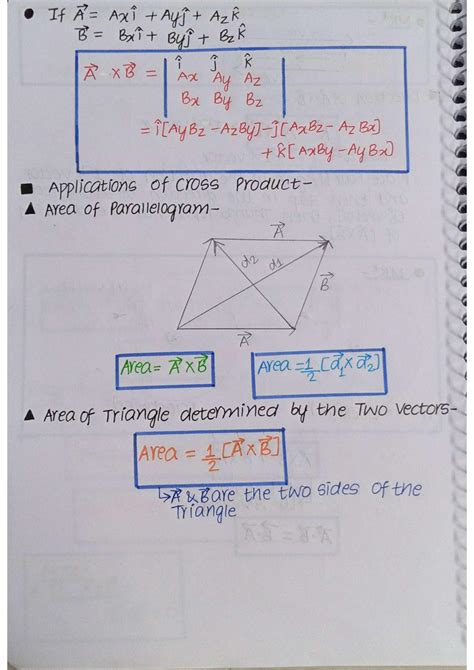 ● If A⃗ = Axî + Ayĵ + Azk̂
B⃗ = Bxî + Byĵ + Bzk̂
î ĵ k̂
A⃗ × B⃗ = | Ax Ay Az |
Bx By Bz
= î[AyBz - AzBy] - ĵ[AxBz - AzBx]
+ k̂[AxBy - AyBx]
■ Applications of Cross Product-
▲ Area of Parallelogram-
A⃗
d2 d1
B⃗
A⃗
Area = A⃗ × B⃗
Area = 1/2 [d⃗1 × d⃗2]
▲ Area of Triangle determined by the Two Vectors-
Area = 1/2 [A⃗ × B⃗]
↳ A⃗ & B⃗ are the two sides of the
Triangle